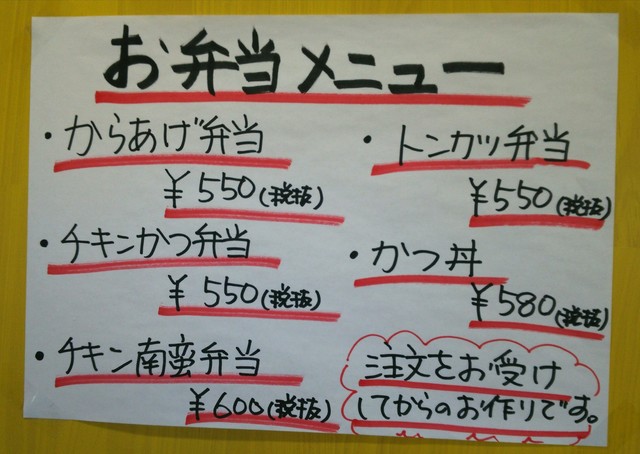 お弁当メニュー
・からあげ弁当
¥550(税抜)
・チキンかつ弁当
¥550(税抜)
・チキン南蛮弁当
¥600(税抜)
・トンカツ弁当
¥550(税抜)
・かつ丼
¥580(税抜)
注文をお受け
してからのお作りです。